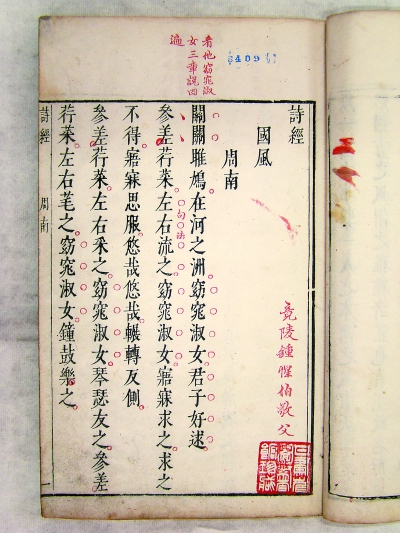 詩經
國風
周南
竟陵鍾惺伯敬父
看他窈窕淑
女三章說四
遍
關關雎鳩在河之洲窈窕淑女君子好逑
參差荇菜左右流之窈窕淑女寤寐求之求之
句法
不得寤寐思服悠哉悠哉輾轉反側
參差荇菜左右采之窈窕淑女琴瑟友之參差
荇菜左右芼之窈窕淑女鐘鼓樂之
詩經 周南 一